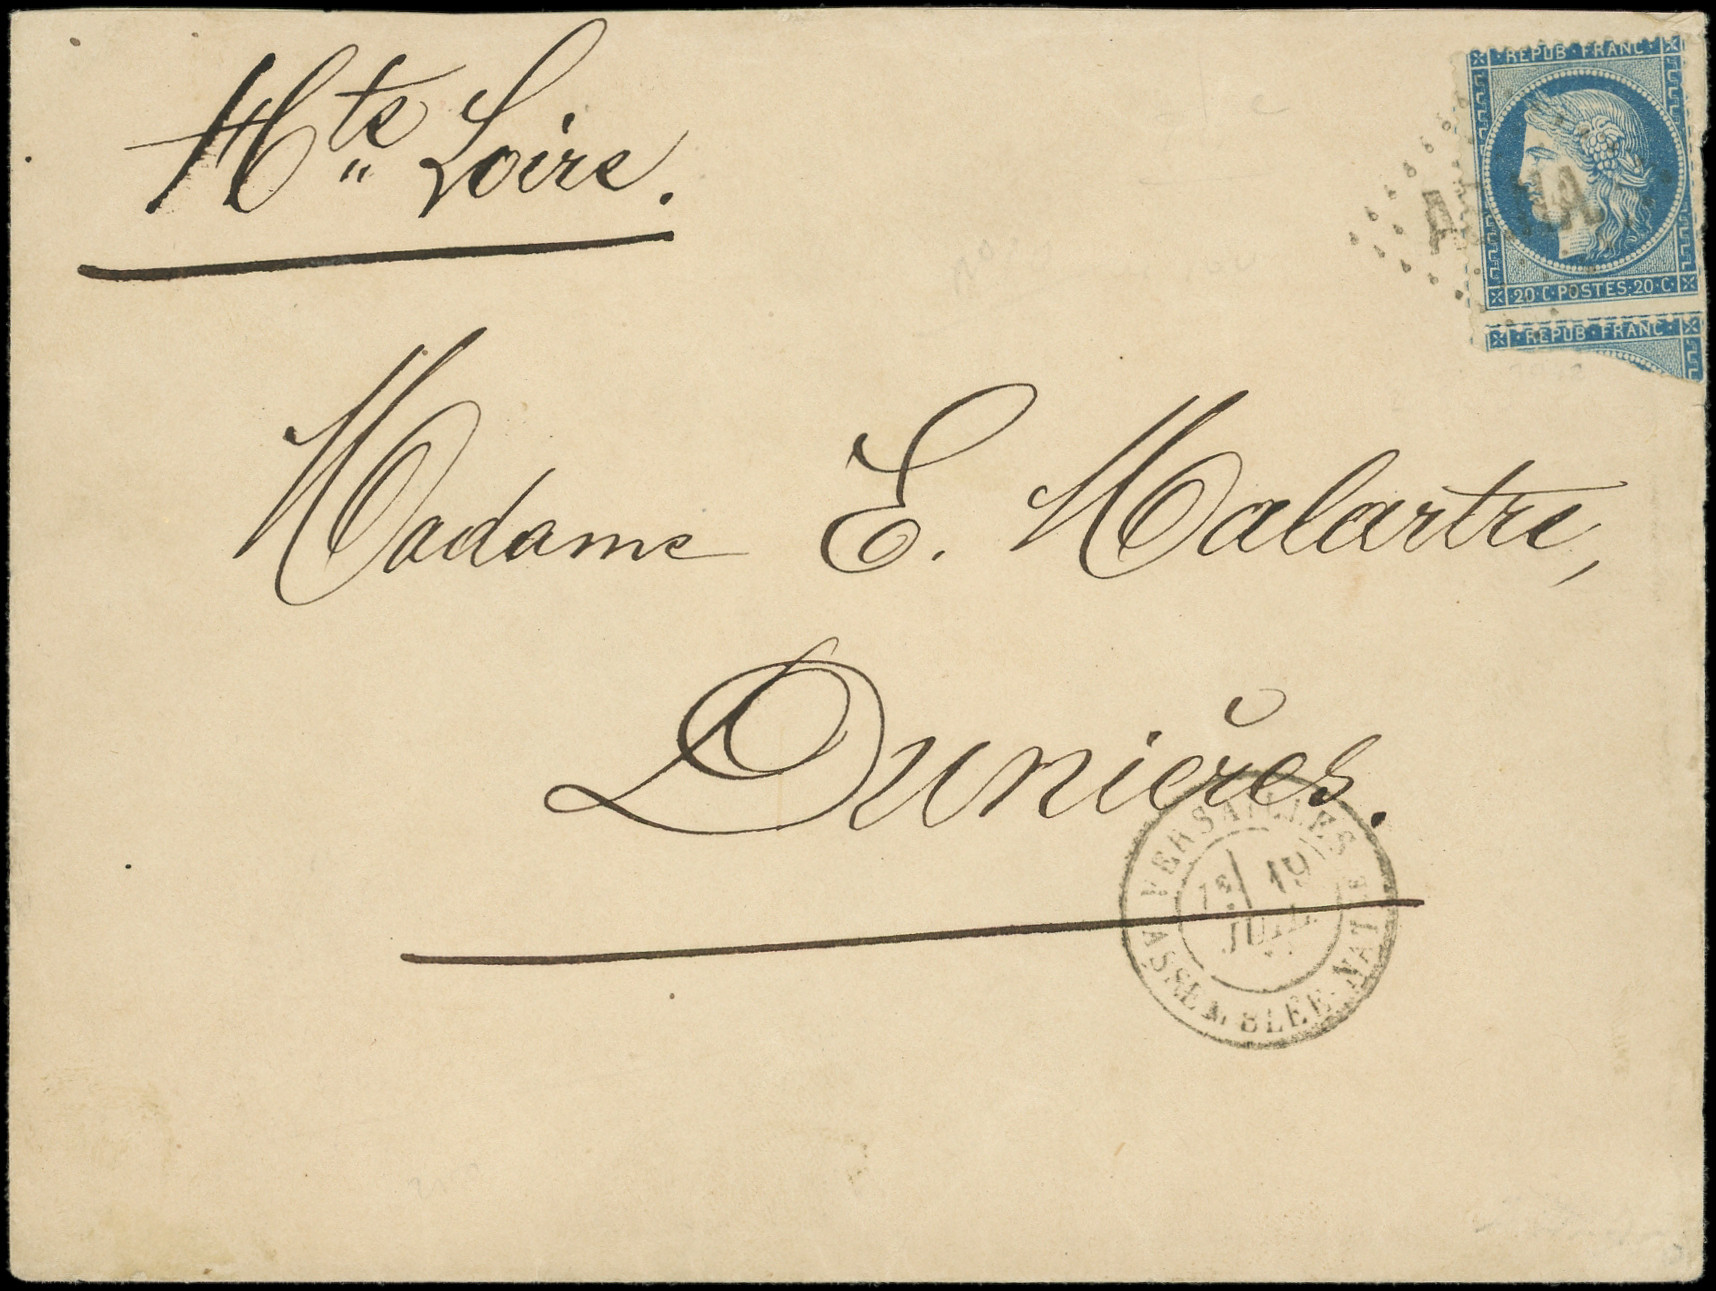 Hte Loire.
REPUB·FRANC·
20·C·POSTES·20·C·
·REPUB·FRANC·
Madame E. Malartre,
Dunières.
VERSAILLES
1E
19
JUIL.
ASSEMBLÉE-NATLE